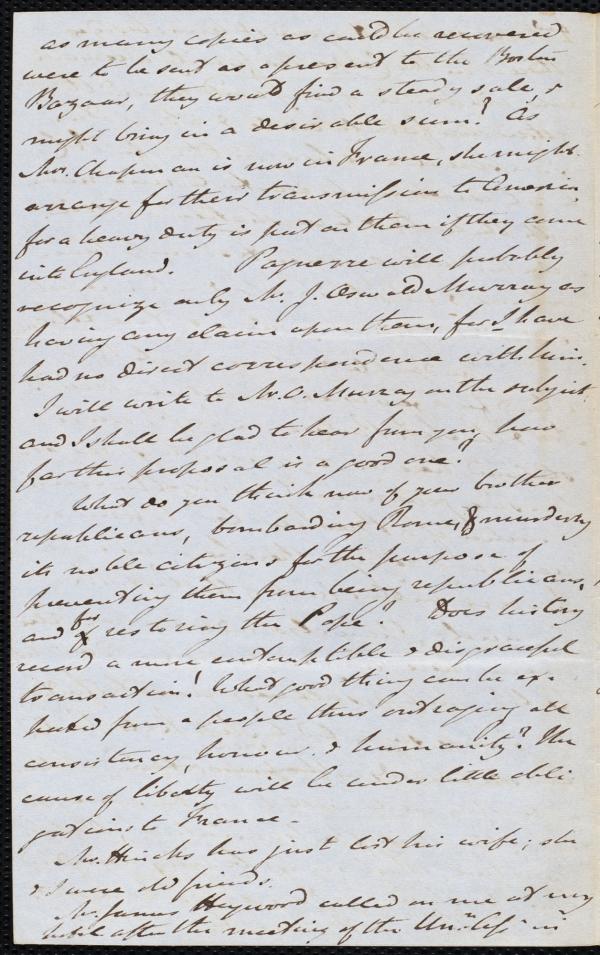 as many copies as could be recovered
were to be sent as a present to the Boston
Bazaar, they would find a steady sale, &
might bring in a desirable sum? As
Mrs. Chapman is now in France, she might
arrange for their transmission to America,
for a heavy duty is put on them if they come
into England. Pagnerre will probably
recognize only Mr. J. Oswald Murray as
having any claim upon them, for I have
had no direct correspondence with him.
I will write to Mr. O. Murray on the subject,
and I shall be glad to hear from you, how
far this proposal is a good one."
What do you think now of your brother
republicans, bombarding Rome, & murdering
its noble citizens for the purpose of
preventing them from being republicans,
and for restoring the Pope! Does history
record a more contemptible & disgraceful
transaction! What good thing can be ex-
pected from a people thus outraging all
consistency, honour, & humanity? The
cause of liberty will be under little obli
gations to France -
Mr. Hincks has just lost his wife; she
& I were old friends.
Mr. James Haywood called on me at my
hotel after the meeting of the Unn. Assn in